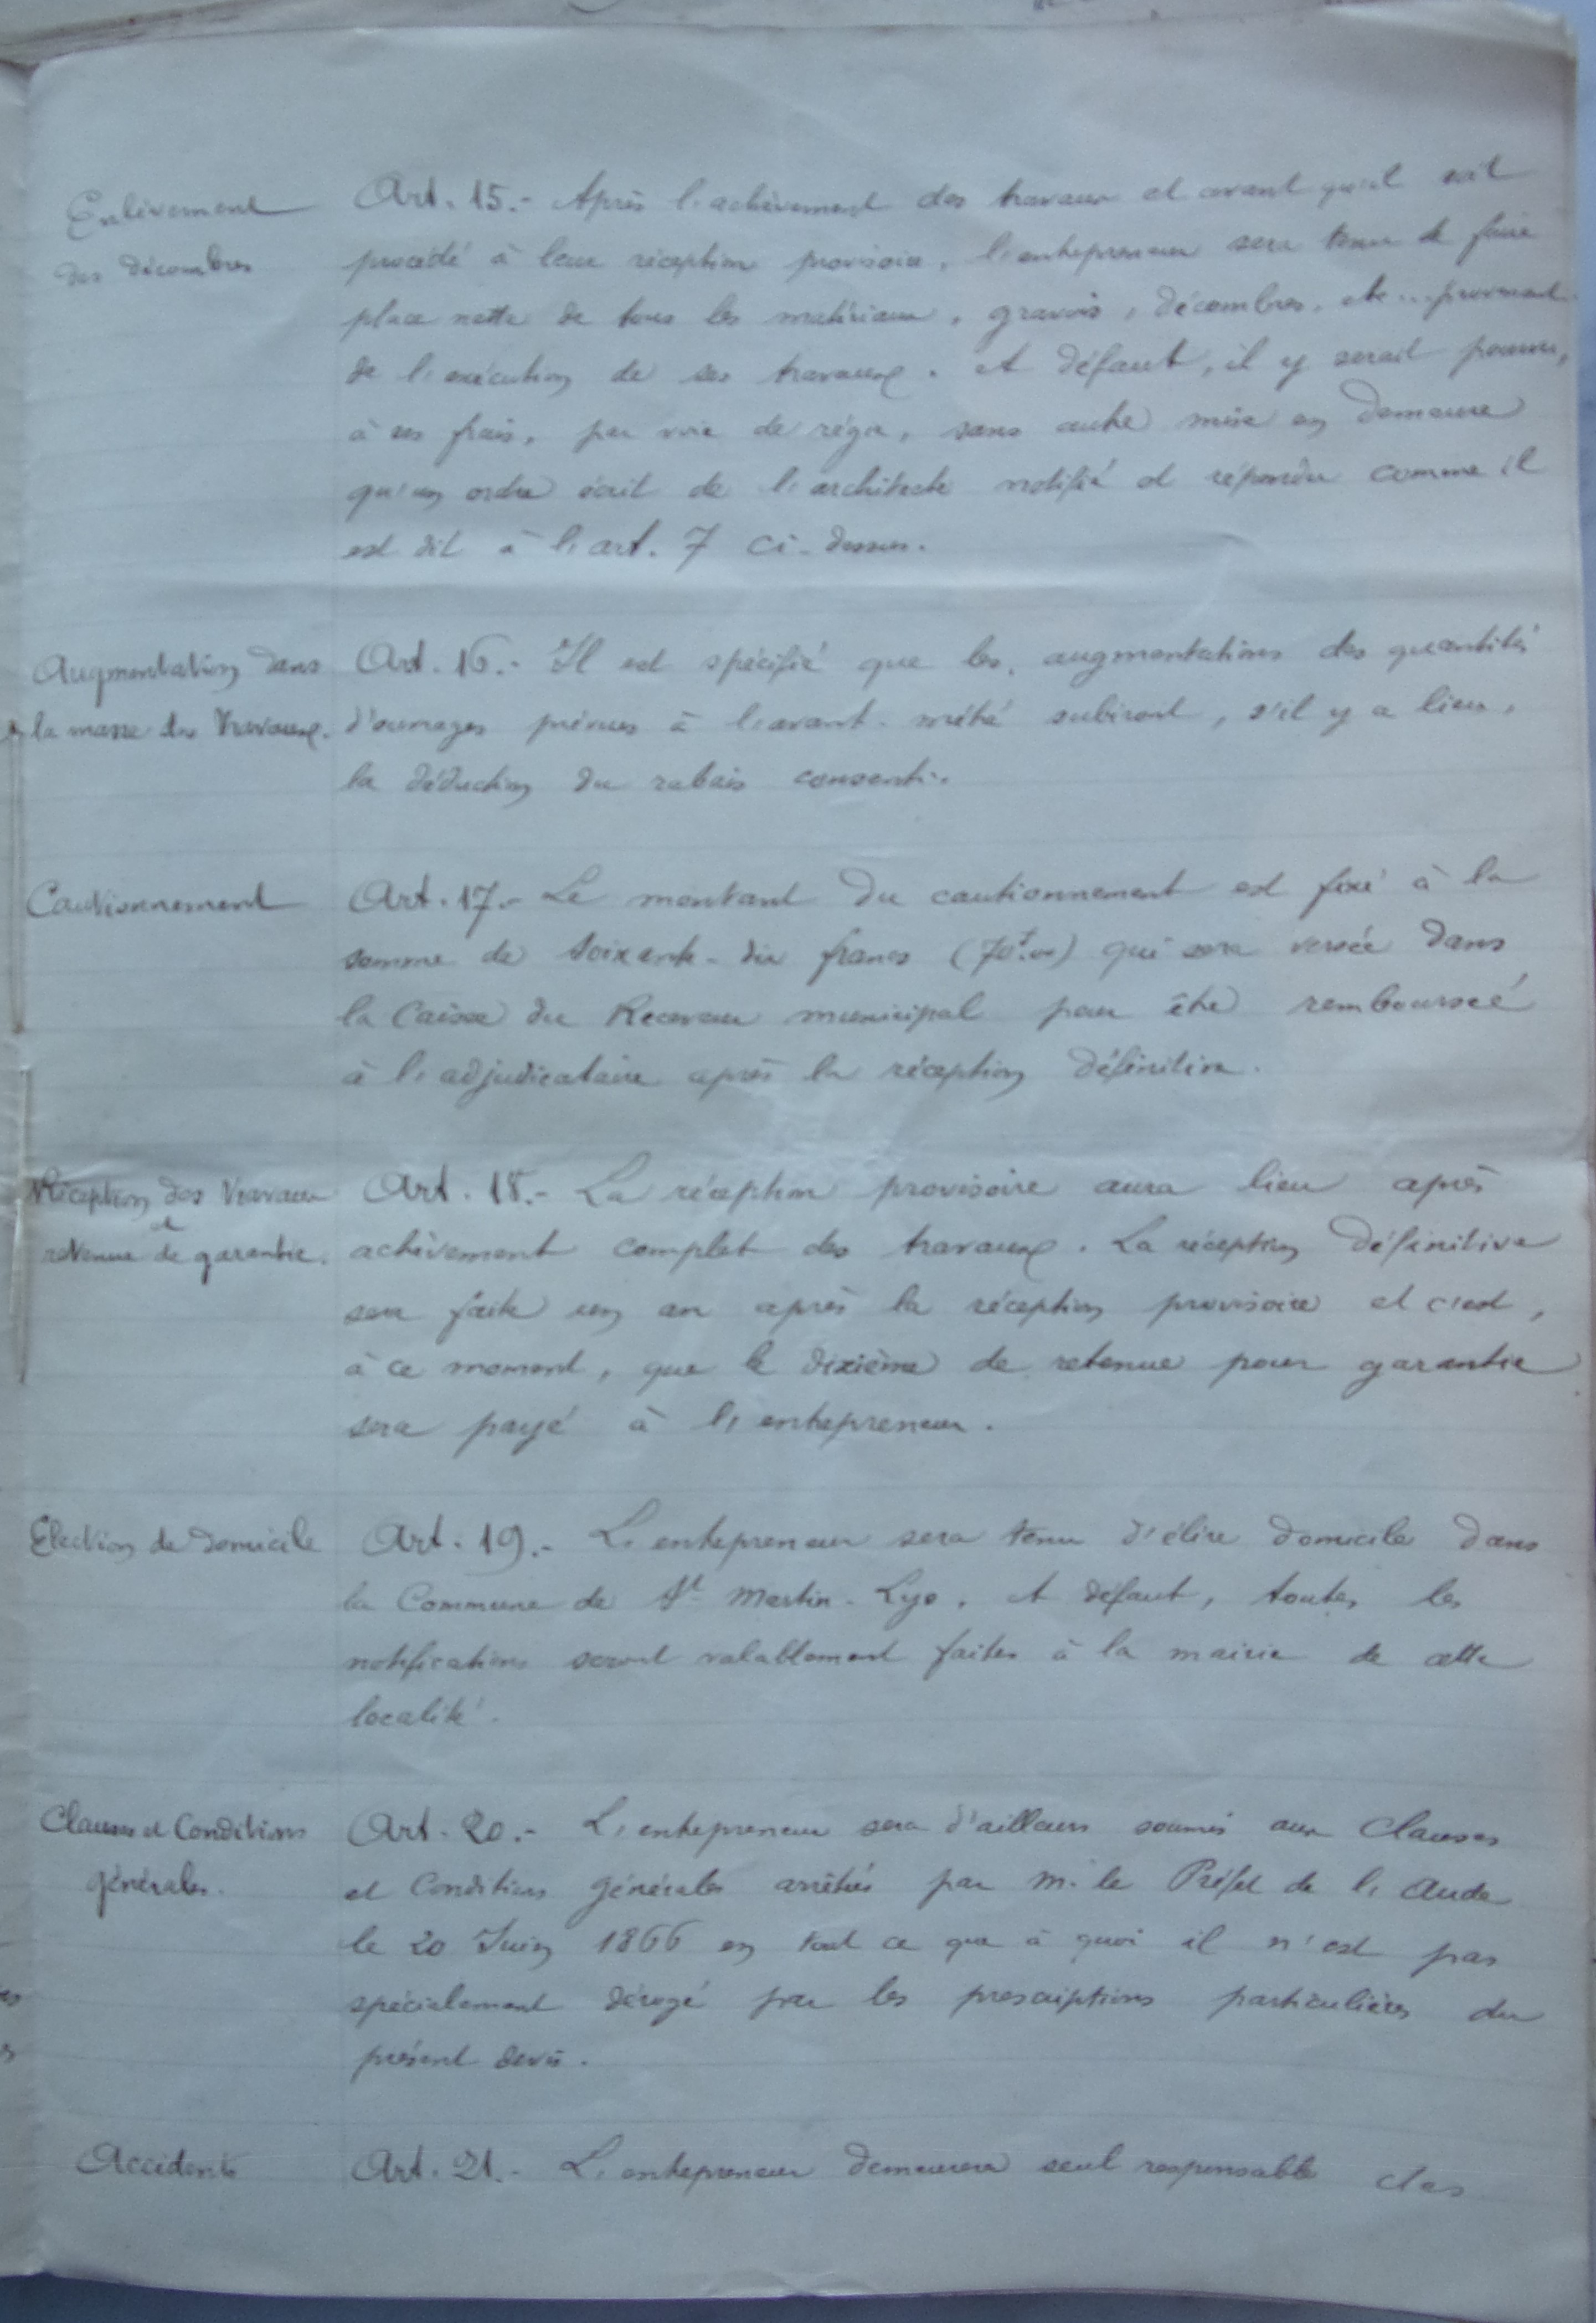 Enlèvement
des décombres
Art. 15.- Après l'achèvement des travaux et avant qu'il soit
procédé à leur réception provisoire, l'entrepreneur sera tenu de faire
place nette de tous les matériaux, gravois, décombres, etc... provenant
de l'exécution de ses travaux. A défaut, il y serait pourvu,
à ses frais, par voie de régie, sans autre mise en demeure
qu'un ordre écrit de l'architecte notifié et répondu comme il
est dit à l'art. 7 ci-dessus.
Augmentation dans
la masse des travaux.
Art. 16.- Il est spécifié que les augmentations des quantités
d'ouvrages prévues à l'avant-métré subiront, s'il y a lieu,
la déduction du rabais consenti.
Cautionnement
Art. 17.- Le montant du cautionnement est fixé à la
somme de soixante-dix francs (70f.00) qui sera versée dans
la Caisse du Receveur municipal pour être remboursée
à l'adjudicataire après la réception définitive.
Réception des travaux
et
retenue de garantie.
Art. 18.- La réception provisoire aura lieu après
achèvement complet des travaux. La réception définitive
sera faite un an après la réception provisoire et c'est,
à ce moment, que le dixième de retenue pour garantie
sera payé à l'entrepreneur.
Election de domicile
Art. 19.- L'entrepreneur sera tenu d'élire domicile dans
la Commune de St Martin-Lys. A défaut, toutes les
notifications seront valablement faites à la mairie de cette
localité.
Clauses et Conditions
générales.
Art. 20.- L'entrepreneur sera d'ailleurs soumis aux Clauses
et Conditions générales arrêtées par M. le Préfet de l'Aude
le 20 Juin 1866 en tout ce que à quoi il n'est pas
spécialement dérogé par les prescriptions particulières du
présent devis.
Accidents
Art. 21.- L'entrepreneur demeurera seul responsable des